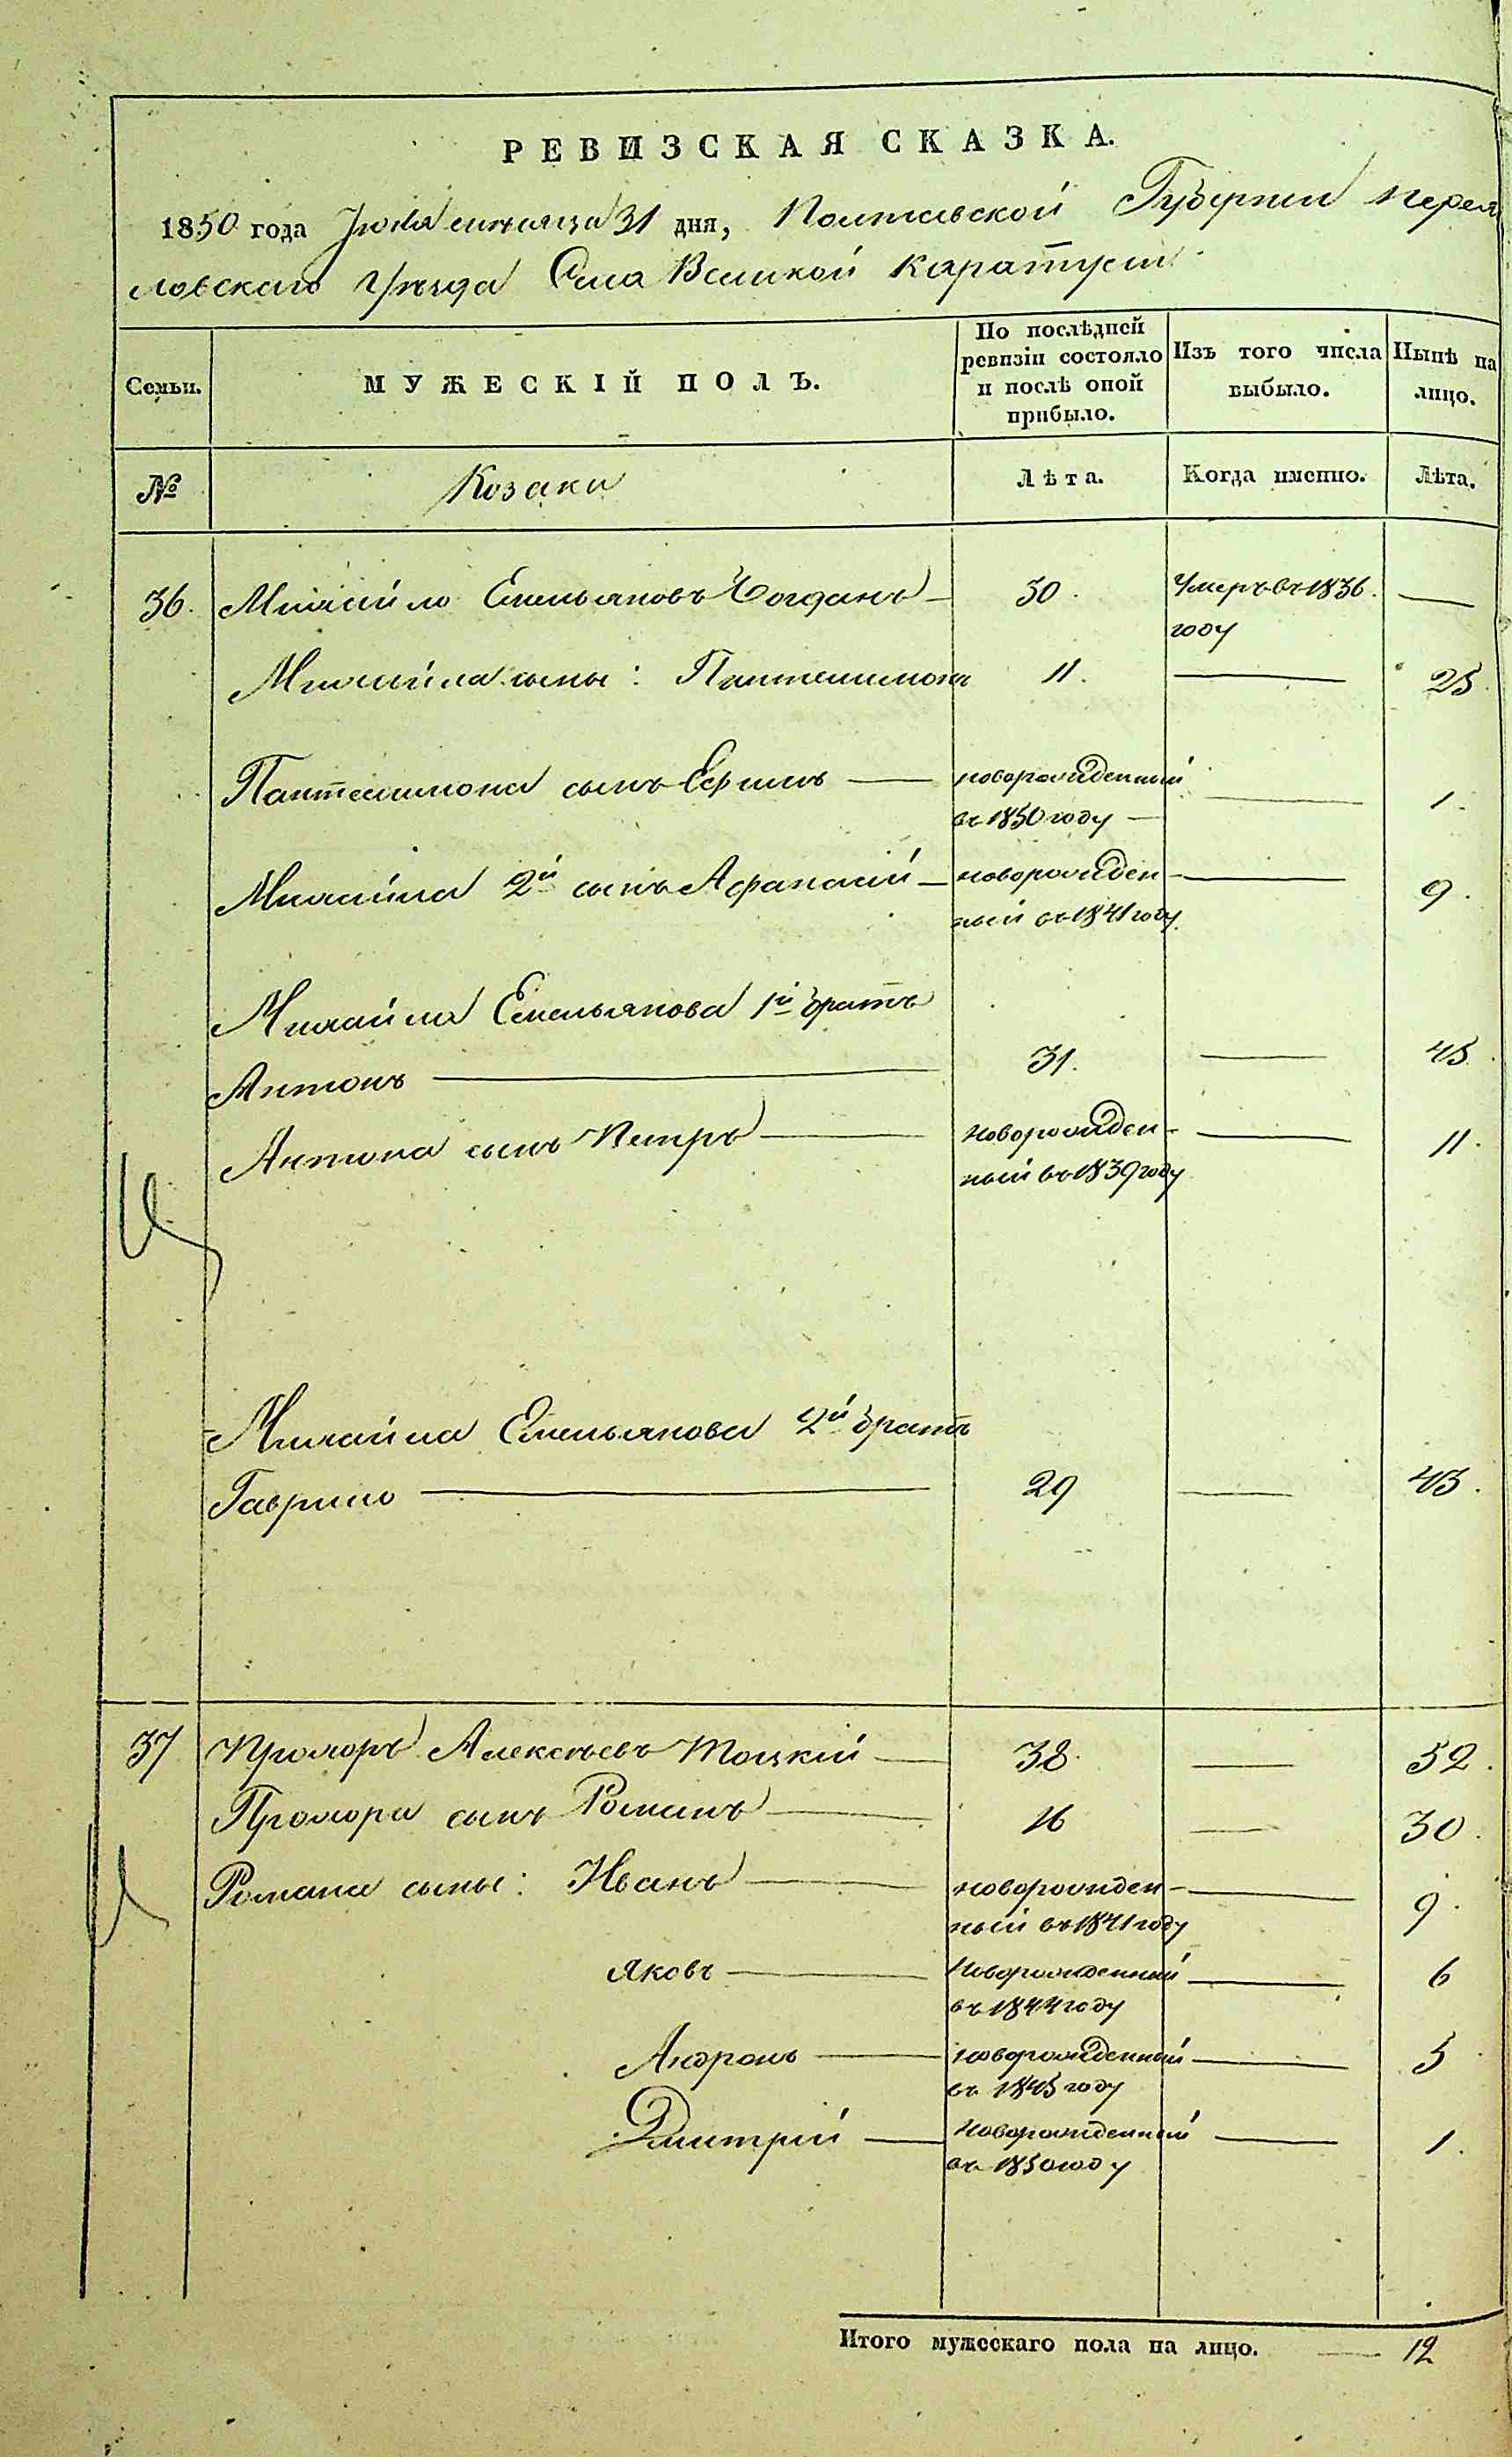 РЕВИЗСКАЯ СКАЗКА.
1850 года Іюля мѣсяца 31 дня, Полтавской Губерніи Перея
словскаго Уѣзда Села Великой Каратули
Семьи.
МУЖЕСКІЙ ПОЛЪ.
По послѣдней ревизіи состояло и послѣ оной прибыло.
Изъ того числа выбыло.
Нынѣ на лицо.
№ Козаки Лѣта. Когда именно. Лѣта.
36. Михайло Емельяновъ Богданъ — 30. Умеръ въ 1836. —
году
Михайла сыны: Пантелимонъ 11. — 25.
Пантелимона сынъ Ефимъ — новорожденный — 1.
въ 1850 году —
Михайла 2й сынъ Афанасій — новорожден- — 9.
ный въ 1841 году.
Михайла Емельянова 1й братъ
Антонъ — 31. — 45.
Антона сынъ Петръ — новорожден- — 11.
ный въ 1839 году
Михайла Емельянова 2й братъ
Гаврило — 29 — 43.
37 Прохоръ Алексѣевъ Тоцкій — 38. — 52.
Прохора сынъ Романъ — 16 — 30.
Романа сыны: Иванъ — новорожден- — 9.
ный въ 1841 году
Яковъ — Новорожденный — 6
въ 1844 году
Андронъ — новорожденный — 5
въ 1845 году
Дмитрій — новорожденный — 1.
въ 1850 году
Итого мужескаго пола на лицо. — 12